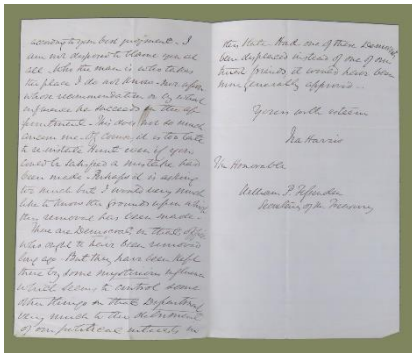 according to your best judgment. I
am not disposed to blame you at
all. Who the man is who takes
his place I do not know. Nor upon
whose recommendation or by whose
influence he succeeds in the ap-
pointment. This does not so much
concern me. Of course, it is too late
to reinstate Hunt even if you
could be satisfied a mistake had
been made. Perhaps it is asking
too much but I would very much
like to know the grounds upon which
this removal has been made.
There are Democrats in that office
who ought to have been removed
long ago. But they have been kept
there by some mysterious influence
which seems to control some
other things in that Department
very much to the detriment
of our political interests in
this State. Had one of these Democrats
been displaced instead of one of our
friends it would have been
more generally approved.
Yours with esteem
Ira Harris
The Honorable
William P. Fessenden
Secretary of the Treasury